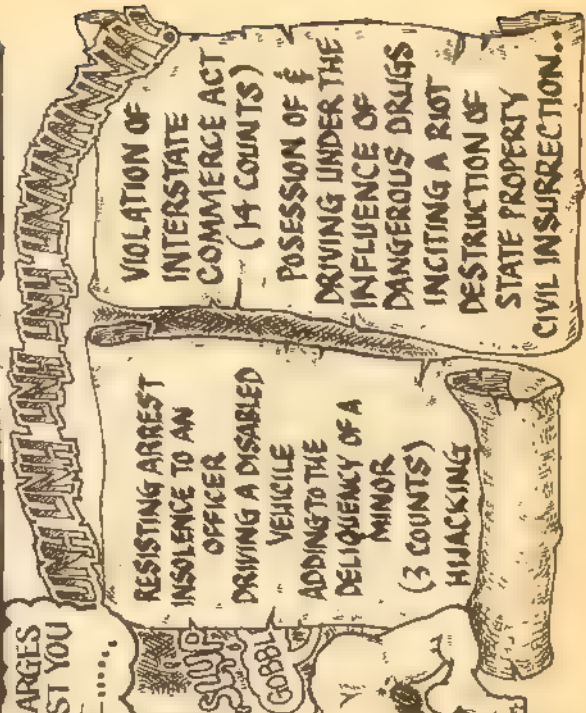 ARGES
ST YOU
UNH UNH UNH UNH
SLUP
GOBBL
RESISTING ARREST
INSOLENCE TO AN
OFFICER
DRIVING A DISABLED
VEHICILE
ADDING TO THE
DELIQUENCY OF A
MINOR
(3 COUNTS)
HIJACKING
VIOLATION OF
INTERSTATE
COMMERCE ACT
(14 COUNTS)
POSESSION OF &
DRIVING UNDER THE
INFLUENCE OF
DANGEROUS DRUGS
INCITING A RIOT
DESTRUCTION OF
STATE PROPERTY
CIVIL INSURRECTION..